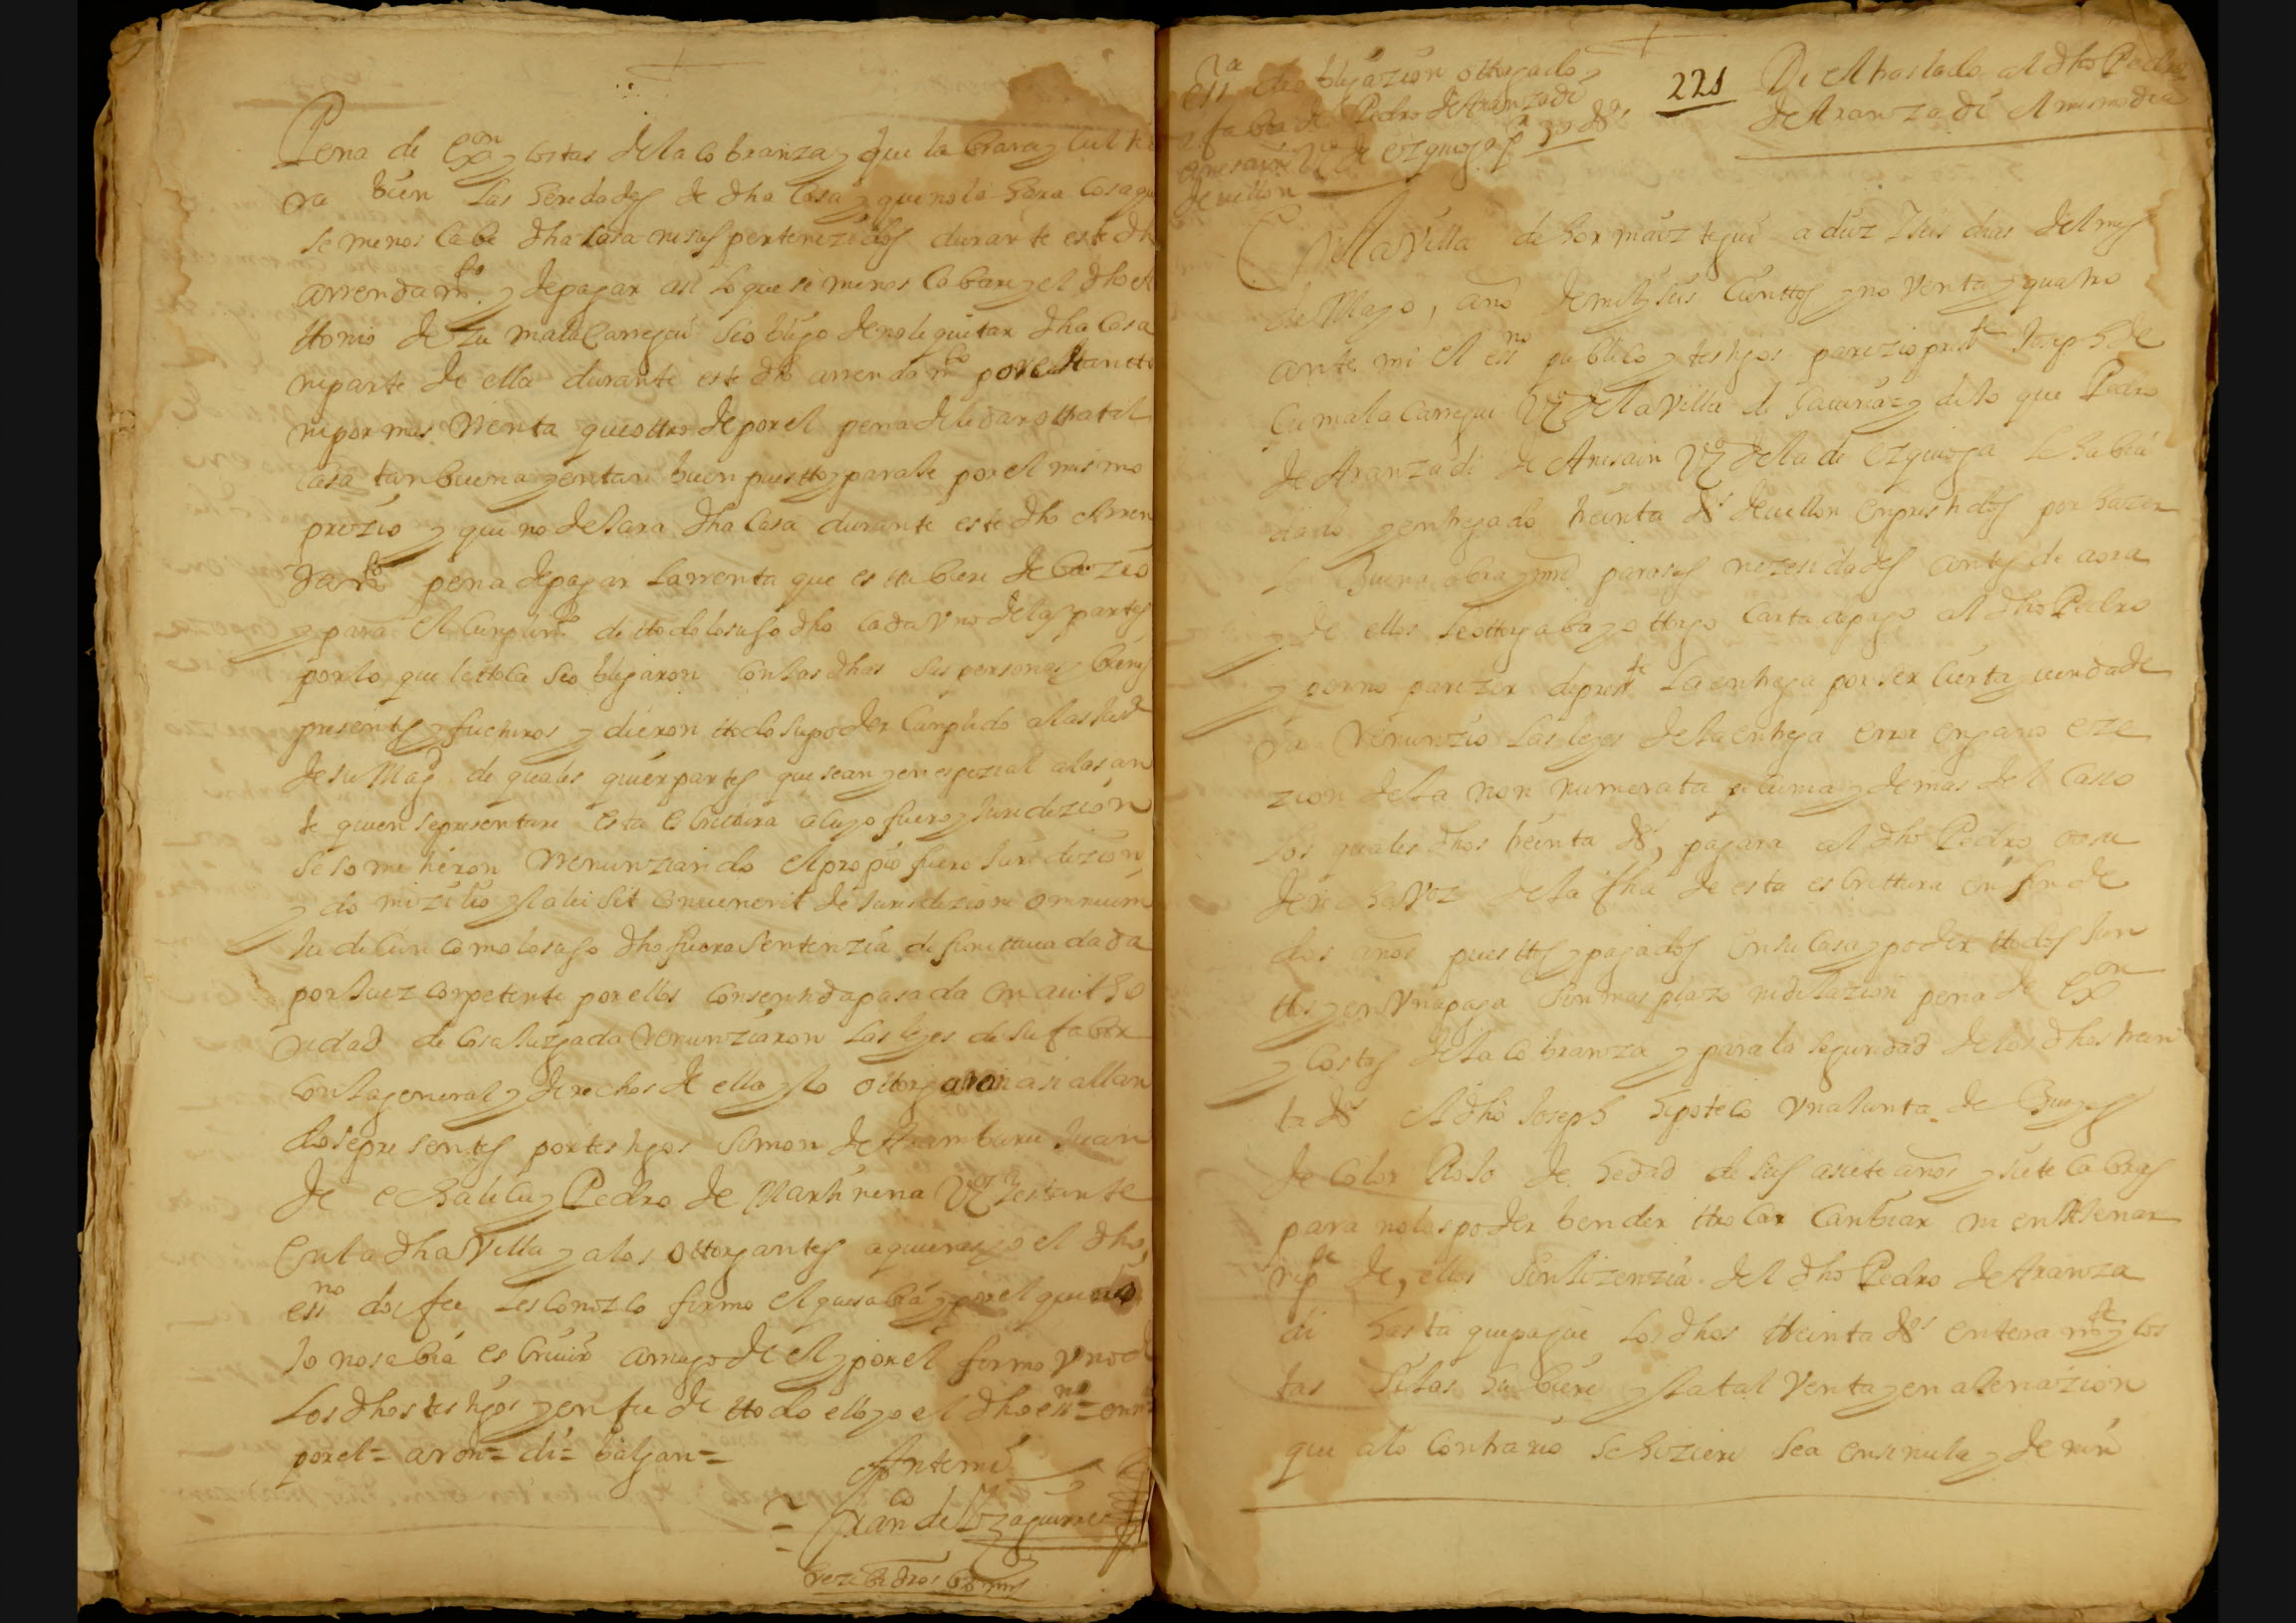 Pena de exon y costas de la cobranza y que labrara y culti
ra bien las heredades de dha casa y que no la hara cosa que
se menoscabe dha casa ni sus pertenezidos durante este dho
arrendamto y de pagar asi lo que se menoscabare y el dho
ttonio de Zumalacarregui se obligo de no le quitar dha casa
ni parte de ella durante este dho arrendamto por el tantto
ni por mas rrenta que ottro de por el pena de le dar ottra tal
casa tan buena y en tan buen puestto y parale por el mismo
prezio y que no dejara dha casa durante este dho Arren
damto pena de pagar la rrenta que esttubiere de bazio
y para el cumplimto de ttodo lo suso dho cada vno de las partes
por lo que le ttoca se obligaron con las dhas sus personas y bienes
presentes y futturos y dieron ttodo su poder cumplido a las Jusd
de su Magd de quales quier partes que sean y en espezial a las an
te quien se presentare esta escrittura a cuyo fuero y Juridizion
se sometieron rrenunziando el propio fuero Juridizion
y domizilio y la lei sit conuenerit de Jurisdizione omnium
Judicun como lo suso dho fuera sentenzia difinittiua dada
por Juez conpetente por ellos consentida pasada en autho
ridad de cosa Juzgada rrenunziaron las leyes de su fabor
con la general y derechos de ella y lo ottorgaron asi allan
dose presentes por testigos Simon de Aramburu Juan
de echalecu y Pedro de Marttirena vzos y estante
en la dha Villa y a los ottorgantes a quienes yo el dho
essno doi fee les conozco firmo el que sabia y por el que
Jo no sabia escriuir a ruego de el y por el firmo vno d
los dhos testigos y en fee de ttodo ello yo el dho essno =
por el = aron = di = balgan =
Ante mi
Franco de Yzaguirre

essra de obligazion ottorgado
a fabor de Pedro de Aranzadi
de Anesain Vzo de ezquioga de 30 ds
de vellon
221
Di el traslado al dho Pedro
de Aranzadi el mismo dia
En la Villa de hormaiztegui a diez y seis dias del mes
de Mayo, año de mil y seis cienttos y no venta y quatro
ante mi el essno publico y testigos parezio prestte Joseph de
Cumalacarregui Vzo de la Villa de Gauiria y dijo que Pedro
de Aranzadi de Anesain Vzo de la de ezquioga le habia
dado y entregado treinta ds de vellon enprestidos por hazer
le Buena obra y md para sus nezesidades antes de aora
y de ellos le ottorgaba y ottorgo carta de pago al dho Pedro
y por no parezer de prestte la entrega por ser cierta y uerdade
ra rrenunzio las leyes de la entrega error engaño eze
zion de la non numerata pecunia y demas del casso
los quales dhos treinta ds, pagara al dho Pedro o a su
derecha voz de la fha de esta escrittura en fin de
dos años puesttos y pagados en su casa y poder ttodos Jun
ttos y en vna paga sin mas plazo ni dilazion pena de exon
y costas de la cobranza y para la seguridad de los dhos trein
ta ds el dho Joseph hipoteco vna Junta de Bueyes
de color Rojo de hedad de seis a siete años y siete cabras
para no las poder bender ttrocar canbiar ni en ajenar
ni pte de, ellos sin lizenzia del dho Pedro de Aranza
di hasta que pague los dhos ttreinta ds enteramte y cos
tas si las hubiere y la tal venta y en ajenazion
que a lo contrario se hiziere sea en si nula y de nin